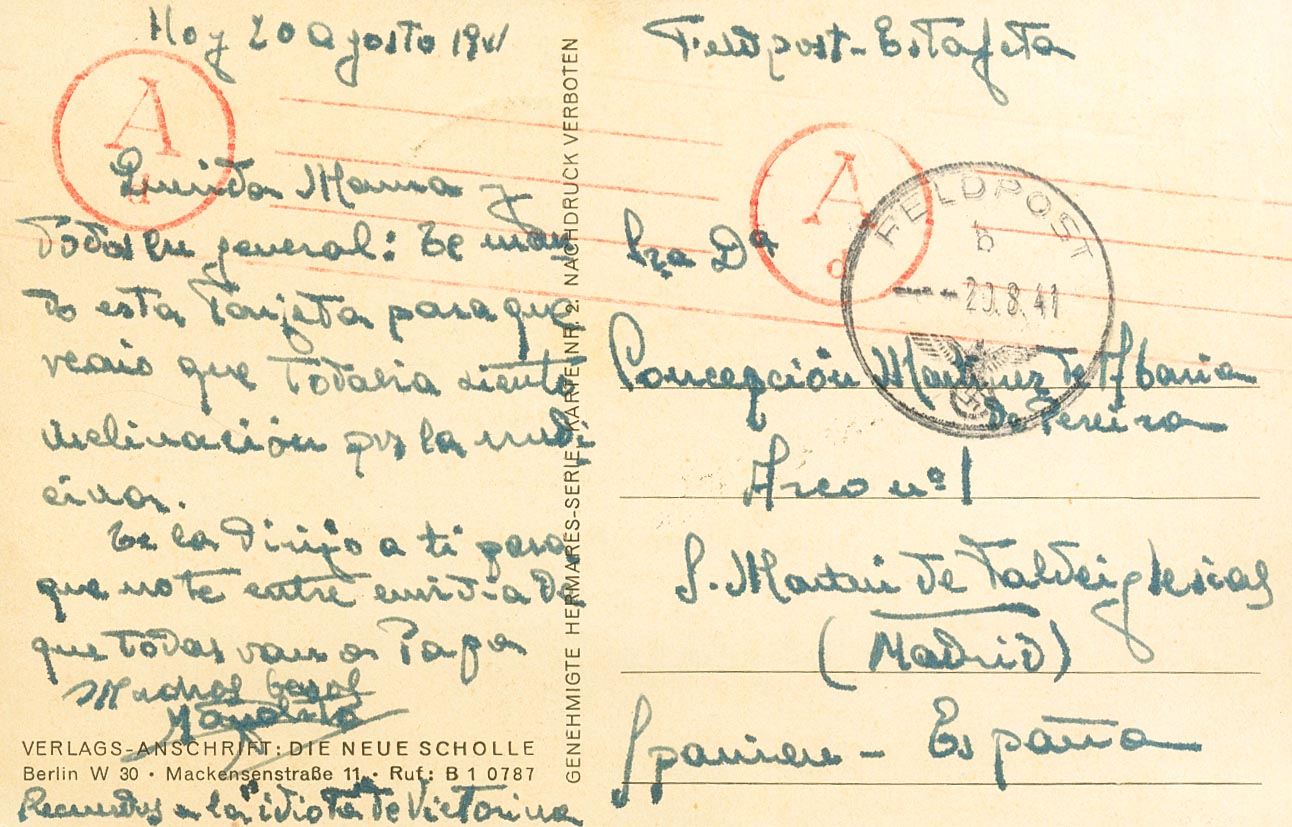 Hoy 20 agosto 1941
Querida Mama y
Todos en general: te man
do esta Tarjeta para que
veais que Todabia siento
inclinación por la medi
cina.
Te la dirijo a ti para
que no te entre envidia de
que todas van a Papa
Muchos besos
VERLAGS-ANSCHRIFT: DIE NEUE SCHOLLE
Berlin W 30 · Mackensenstraße 11 · Ruf: B 1 0787
Recuerdos a la idiota de Victorina
GENEHMIGTE HERMARES-SERIE, KARTENNR. 2. NACHDRUCK VERBOTEN
Feldpost-Estafeta
A
d
A
d
FELDPOST
b
20.8.41
Sra Dª
Concepción Martinez de
de Pereira
Arco nº 1
S. Martin de Valdeiglesias
(Madrid)
Spanien - España